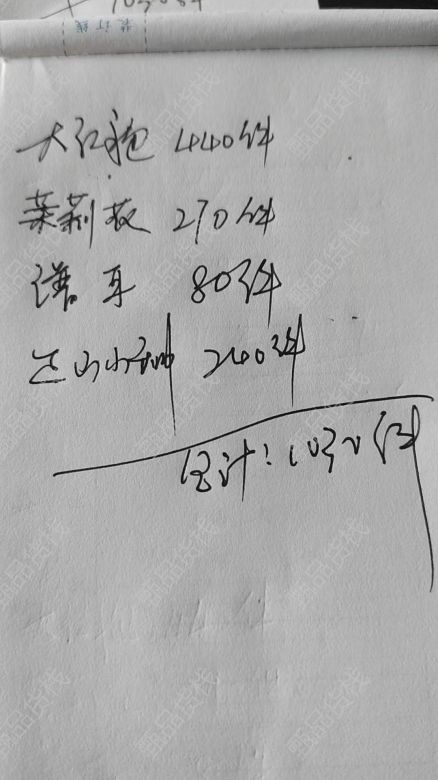 大红袍 440件
茉莉花 270件
80件
正山小种 240件
合计:1030件